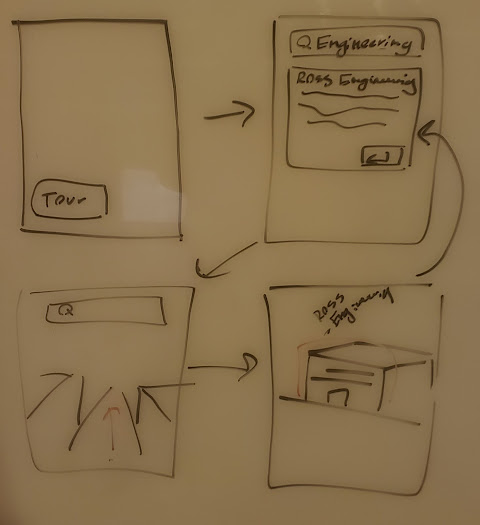 Tour
Q Engineering
Ross Engineering
Q
Ross
Engineering